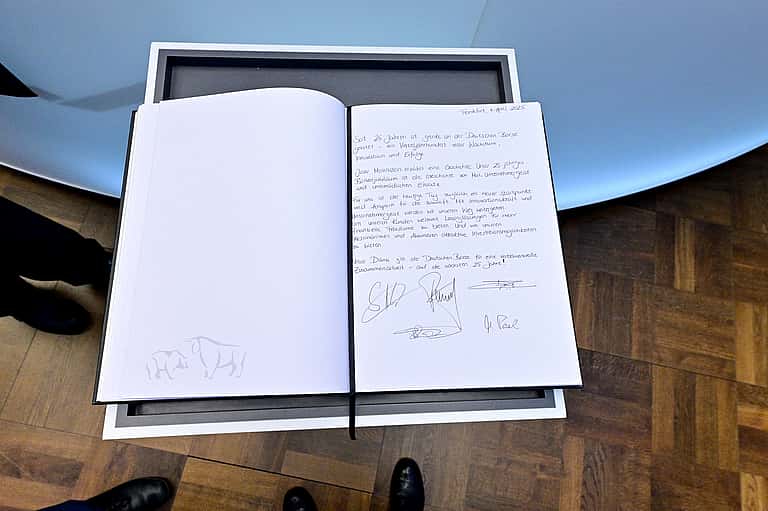 Frankfurt, 4. April 2025
Seit 25 Jahren ist grenke an der Deutschen Börse
gelistet – ein Vierteljahrhundert voller Wachstum,
Innovation und Erfolge.
Jeder Meilenstein erzählt eine Geschichte. Unser 25 jähriges
Börsenjubiläum ist die Geschichte von Mut, Unternehmergeist
und unermüdlichem Einsatz.
Für uns ist der heutige Tag zugleich ein neuer Startpunkt
und Ansporn für die Zukunft. Mit Innovationskraft und
Unternehmergeist werden wir unseren Weg weitergehen,
um unseren Kunden weltweit Leasinglösungen für mehr
finanzielle Freiräume zu bieten. Und um unseren
Aktionärinnen und Aktionären attraktive Investitionsmöglichkeiten
zu bieten.
Vielen Dank an die Deutsche Börse für eine vertrauensvolle
Zusammenarbeit – auf die nächsten 25 Jahre!